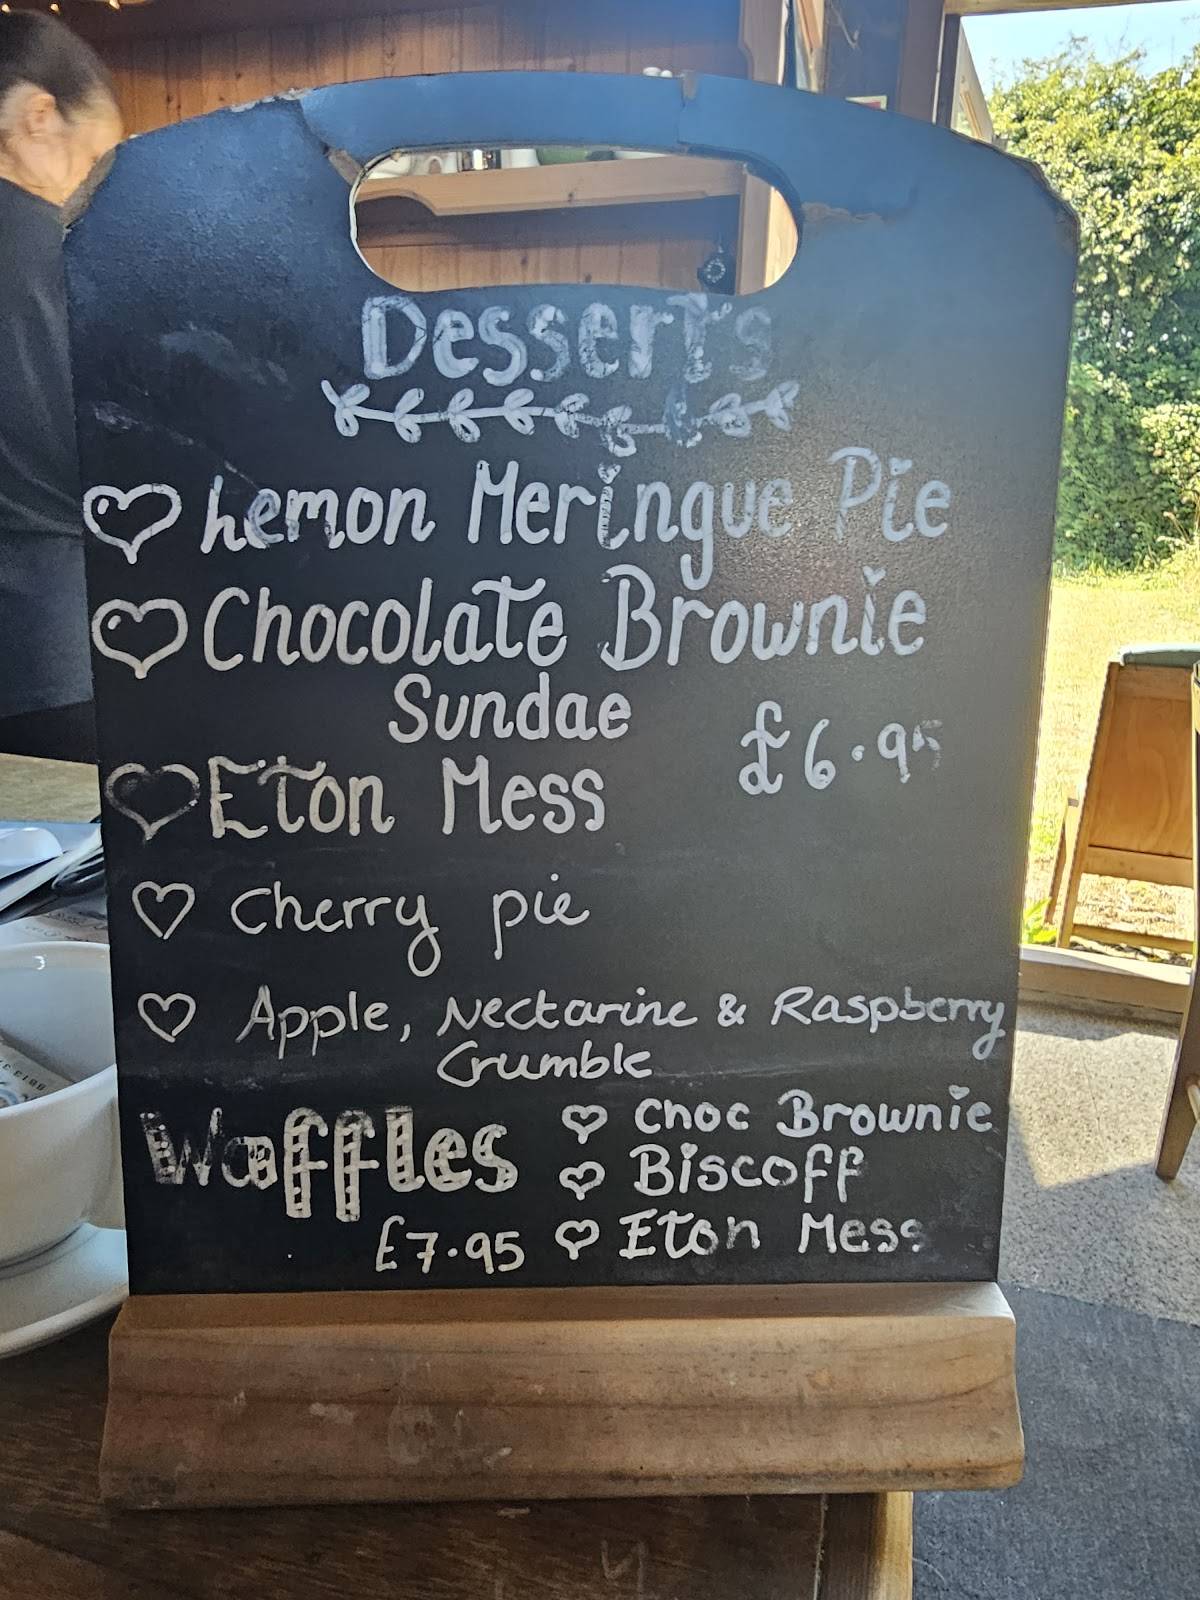 Desserts
Lemon Meringue Pie
Chocolate Brownie
Sundae
£6.95
Eton Mess
Cherry pie
Apple, Nectarine & Raspberry
Crumble
Waffles
£7.95
Choc Brownie
Biscoff
Eton Mess